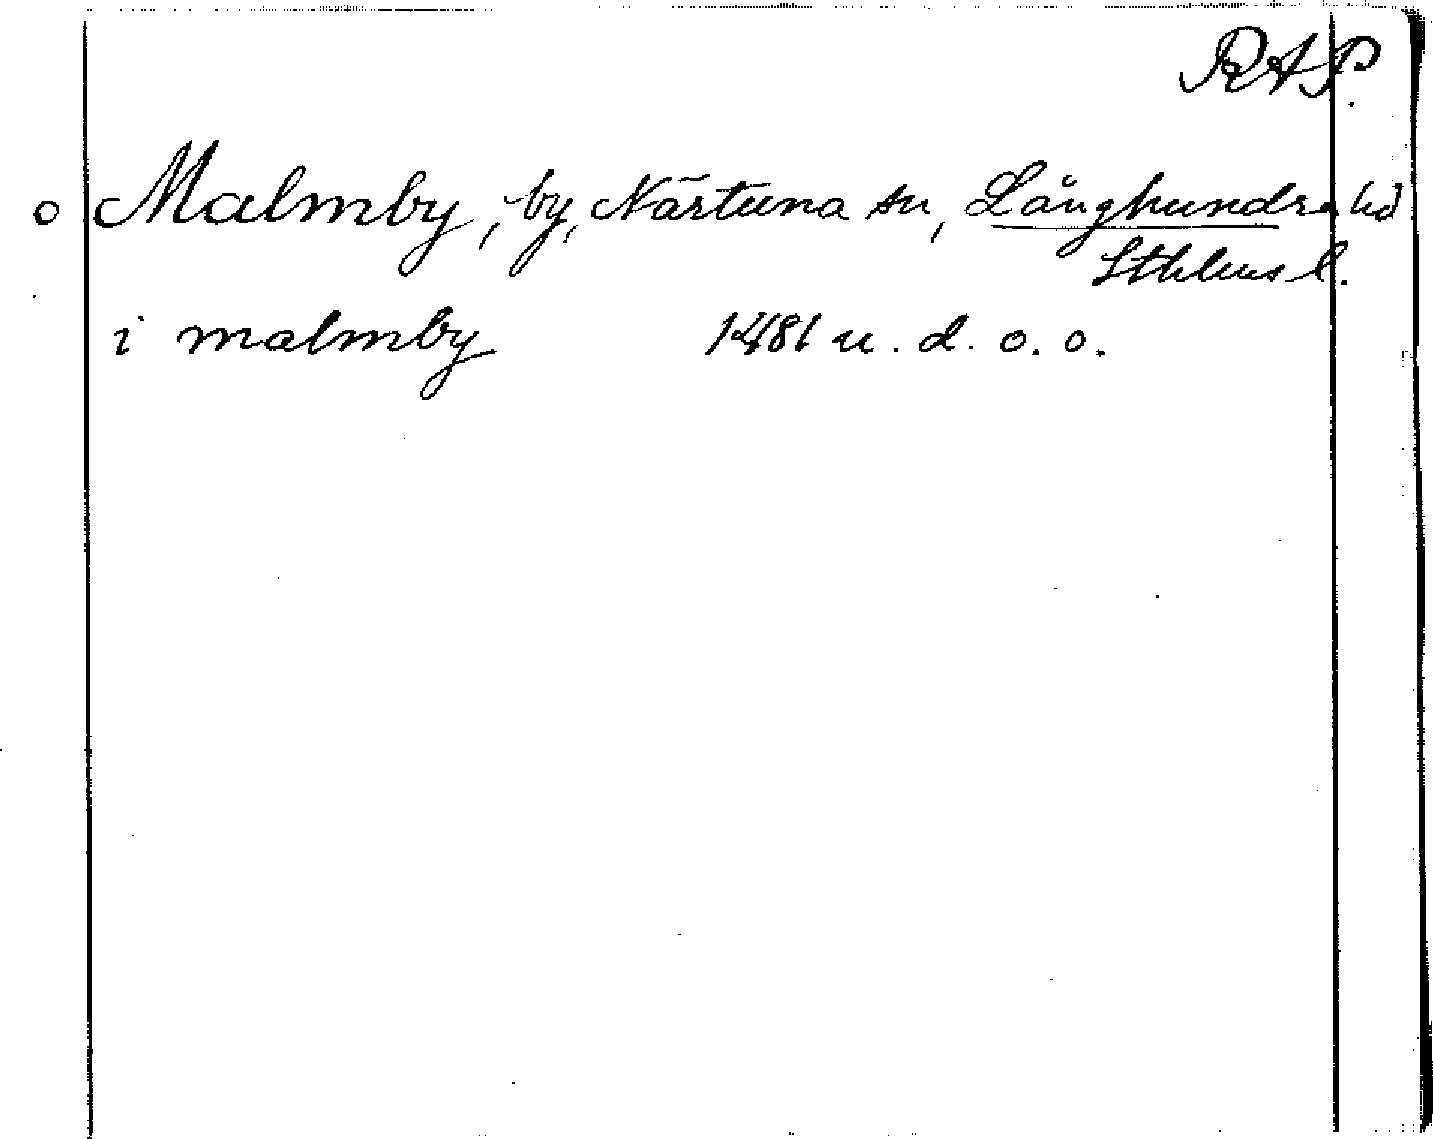 RAP.
o Malmby, by, Närtuna sn, Långhundra hd
Sthlms l.
i malmby 1481 u. d. o. o.